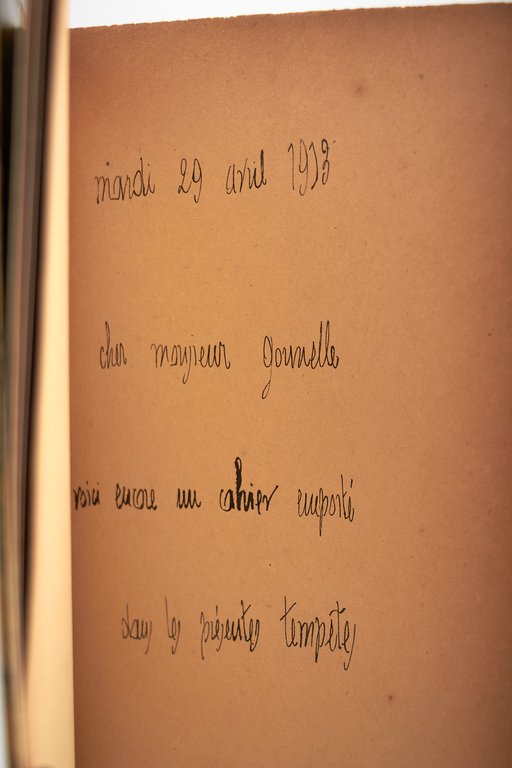 mardi 29 avril 1913
cher monsieur gounelle
voici encore un cahier emporté
dans les présentes tempêtes